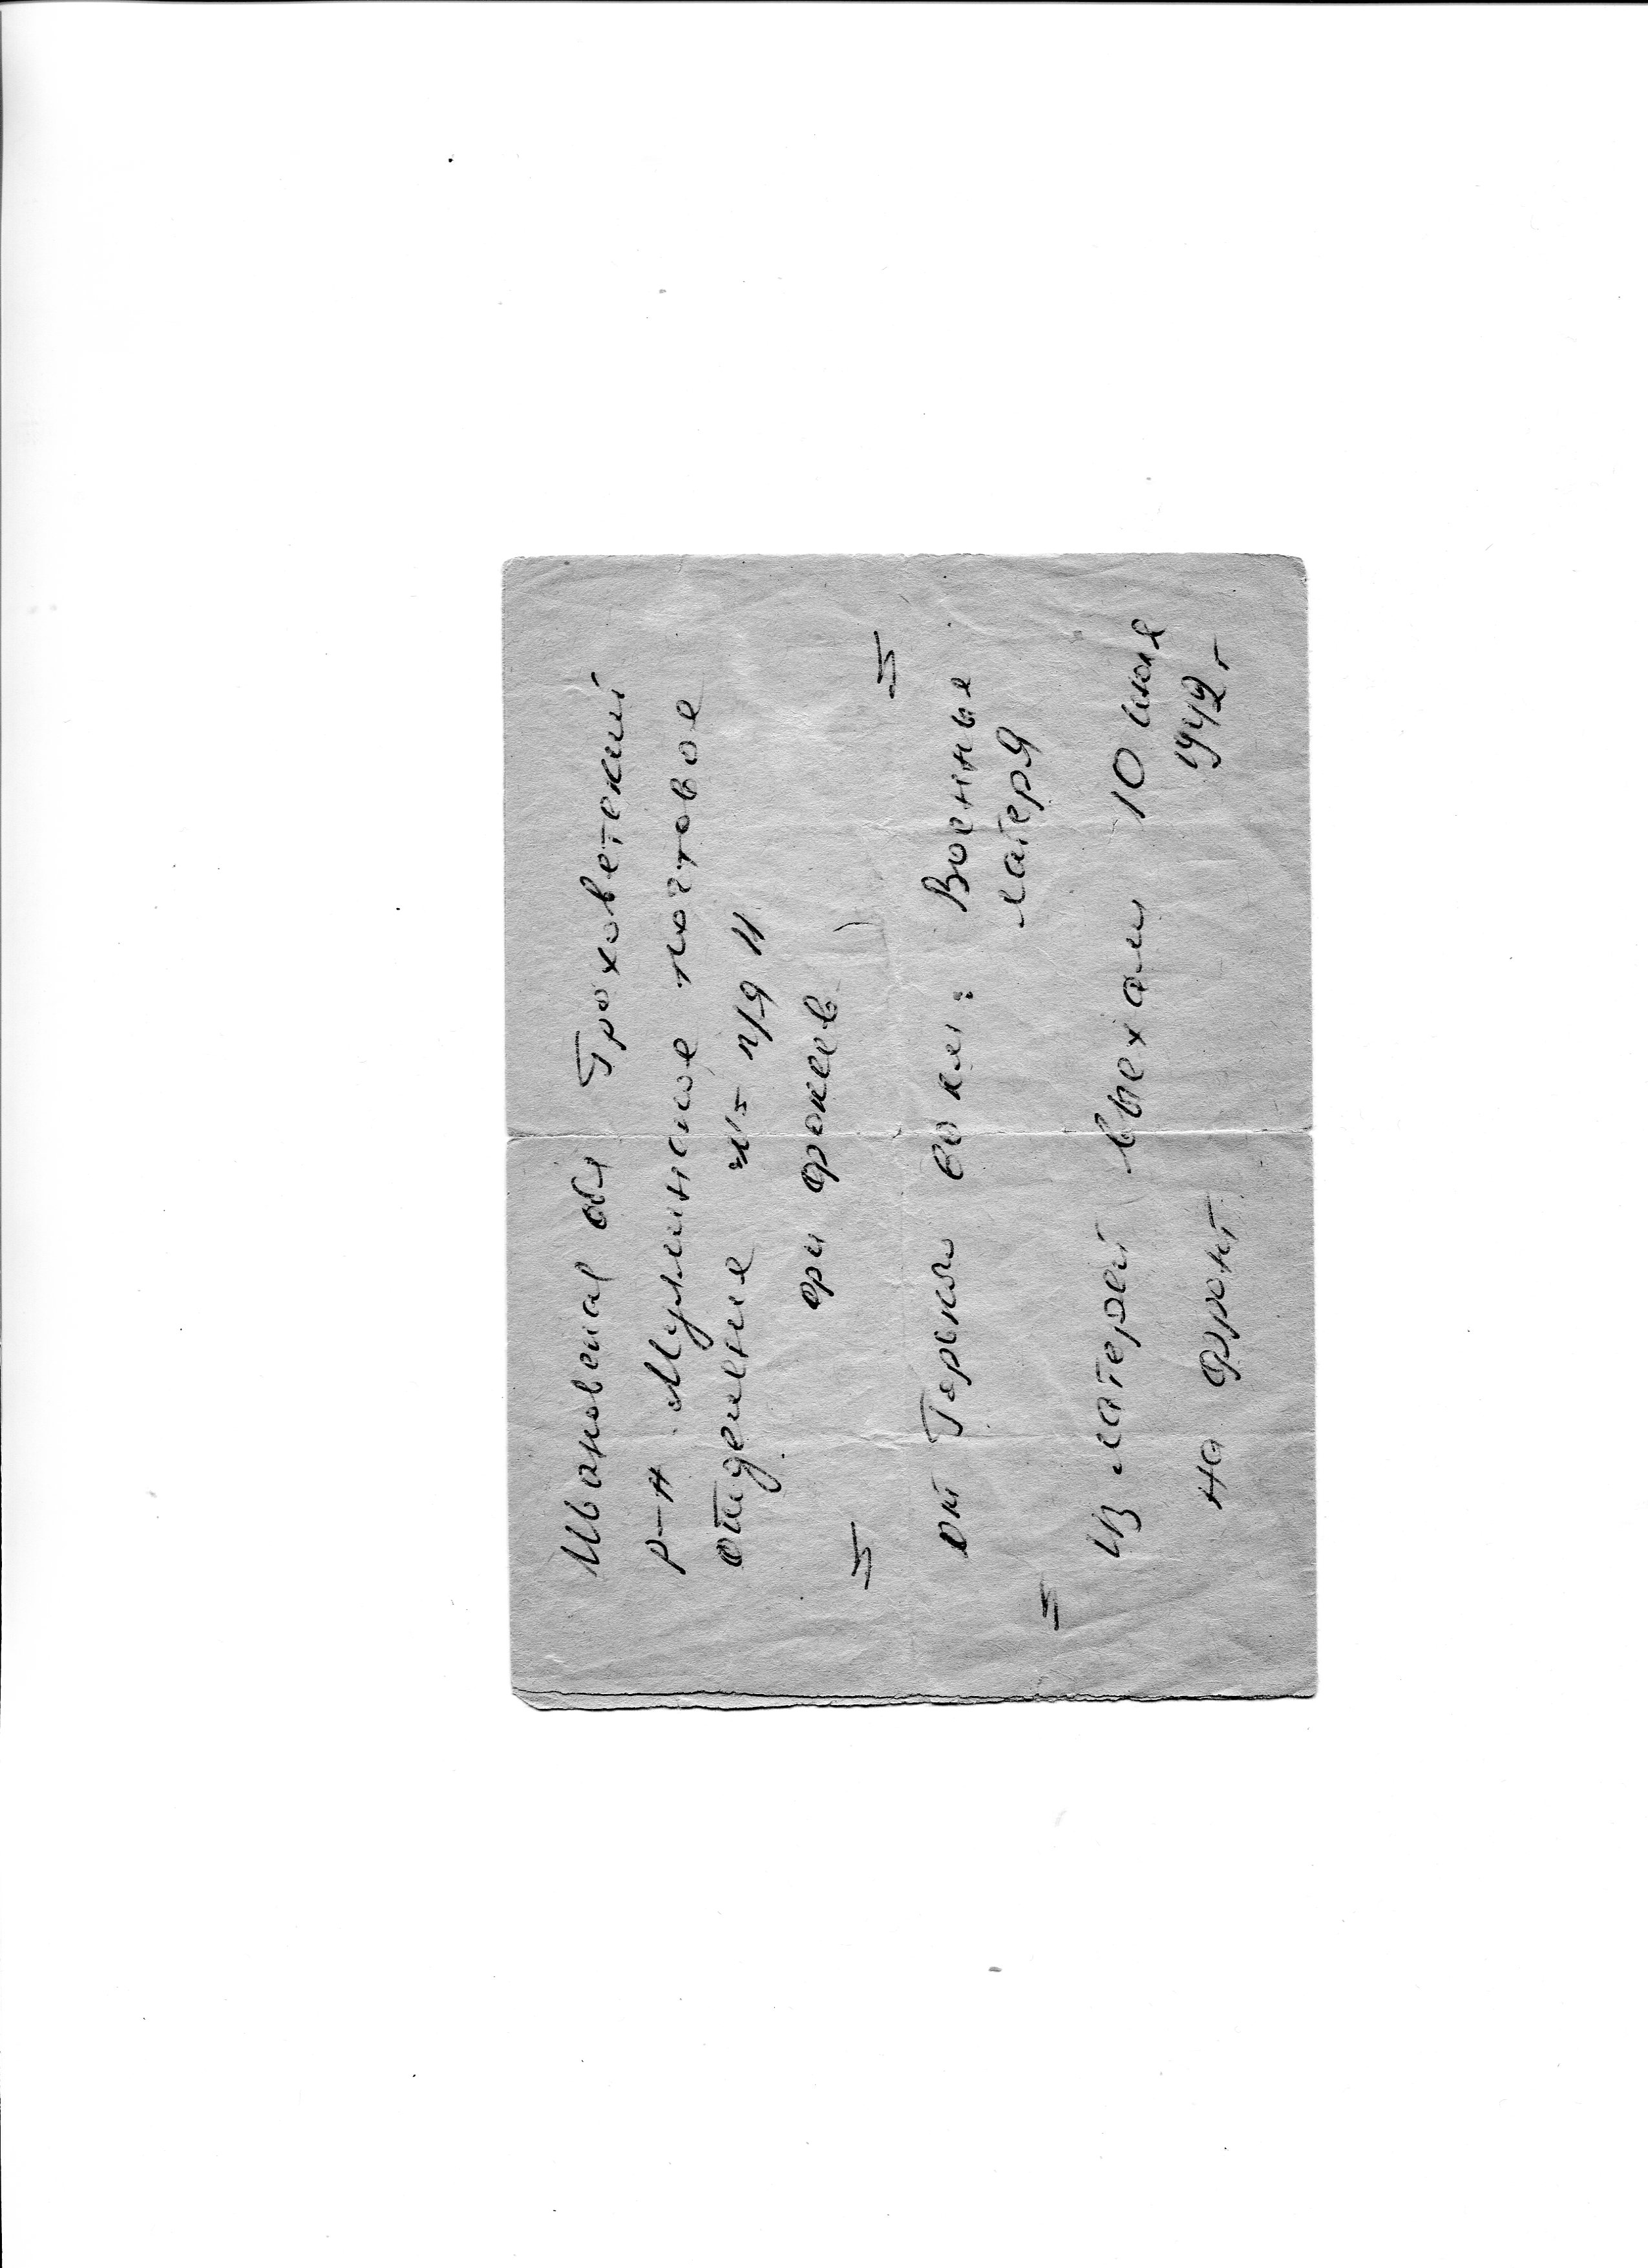 Ивановская обл Гроховетский
р-н Мулинское почтовое
отделение п/я 11
от Горького 60 км: Военные
лагеря
Из лагерей выехали 10 июля
1942 г
на фронт